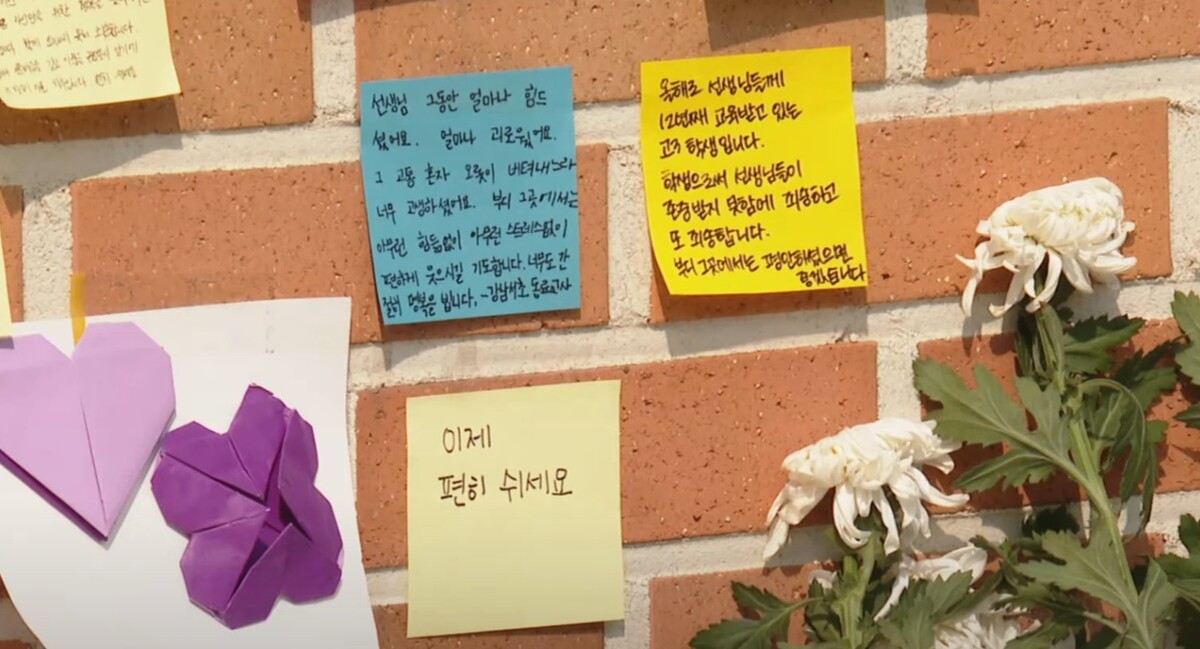 선생님 그동안 얼마나 힘드
셨어요. 얼마나 괴로웠어요.
그 고통 혼자 오롯이 버텨내느라
너무 고생하셨어요. 부디 그곳에서는
아무런 힘듦없이 아무런 스트레스없이
편하게 웃으시길 기도합니다. 너무도 간
절히 명복을 빕니다. -강남서초 동료교사
올해로 선생님들께
12년째 교육받고 있는
고3 학생입니다.
학생으로써 선생님들이
존중받지 못함에 죄송하고
또 죄송합니다.
부디 그곳에서는 평안하셨으면
좋겠습니다
이제
편히 쉬세요